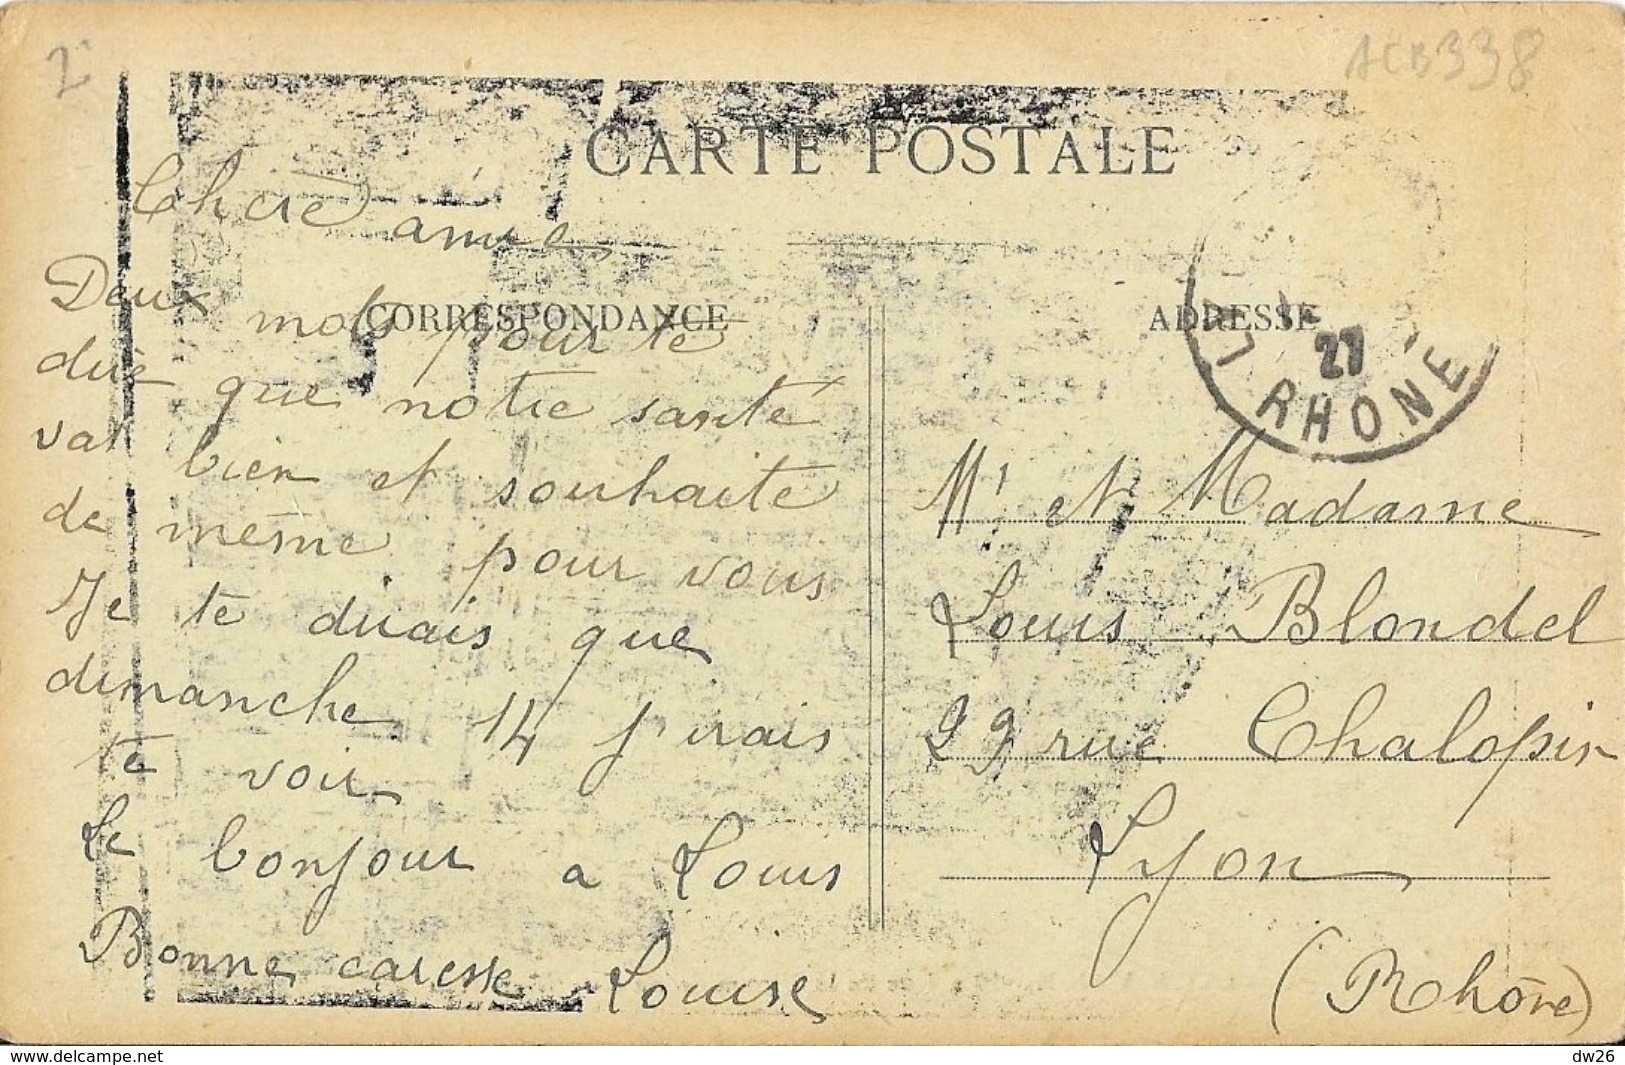 2
ACB338
CARTE POSTALE
CORRESPONDANCE
ADRESSE
27
RHONE
Chère amie
Deux mots pour te
dire que notre santé
vat bien et souhaite
de même pour vous
Je te dirais que
dimanche 14 j'irais
te voir
Le bonjour a Louis
Bonne caresse Louise
Mr et Madame
Louis Blondel
99 rue Chalopin
Lyon
(Rhône)
delcampe.net
dw26